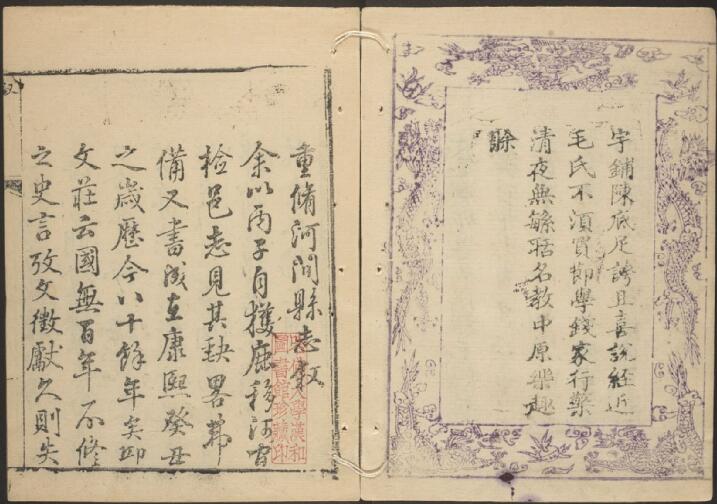 字鋪陳底足誇且喜說經近
毛氏不須買卸學錢家行藥
清夜無絲聒名教中原樂趣
賒
重脩河間縣志敘
余以丙子自獲鹿移河間
檢邑志見其缺畧弗
備又書成在康熙癸丑
之歲歷今八十餘年矣邱
文莊云國無百年不修
之史言攷文徵獻久則失
哈佛大學漢和
圖書館珍藏印